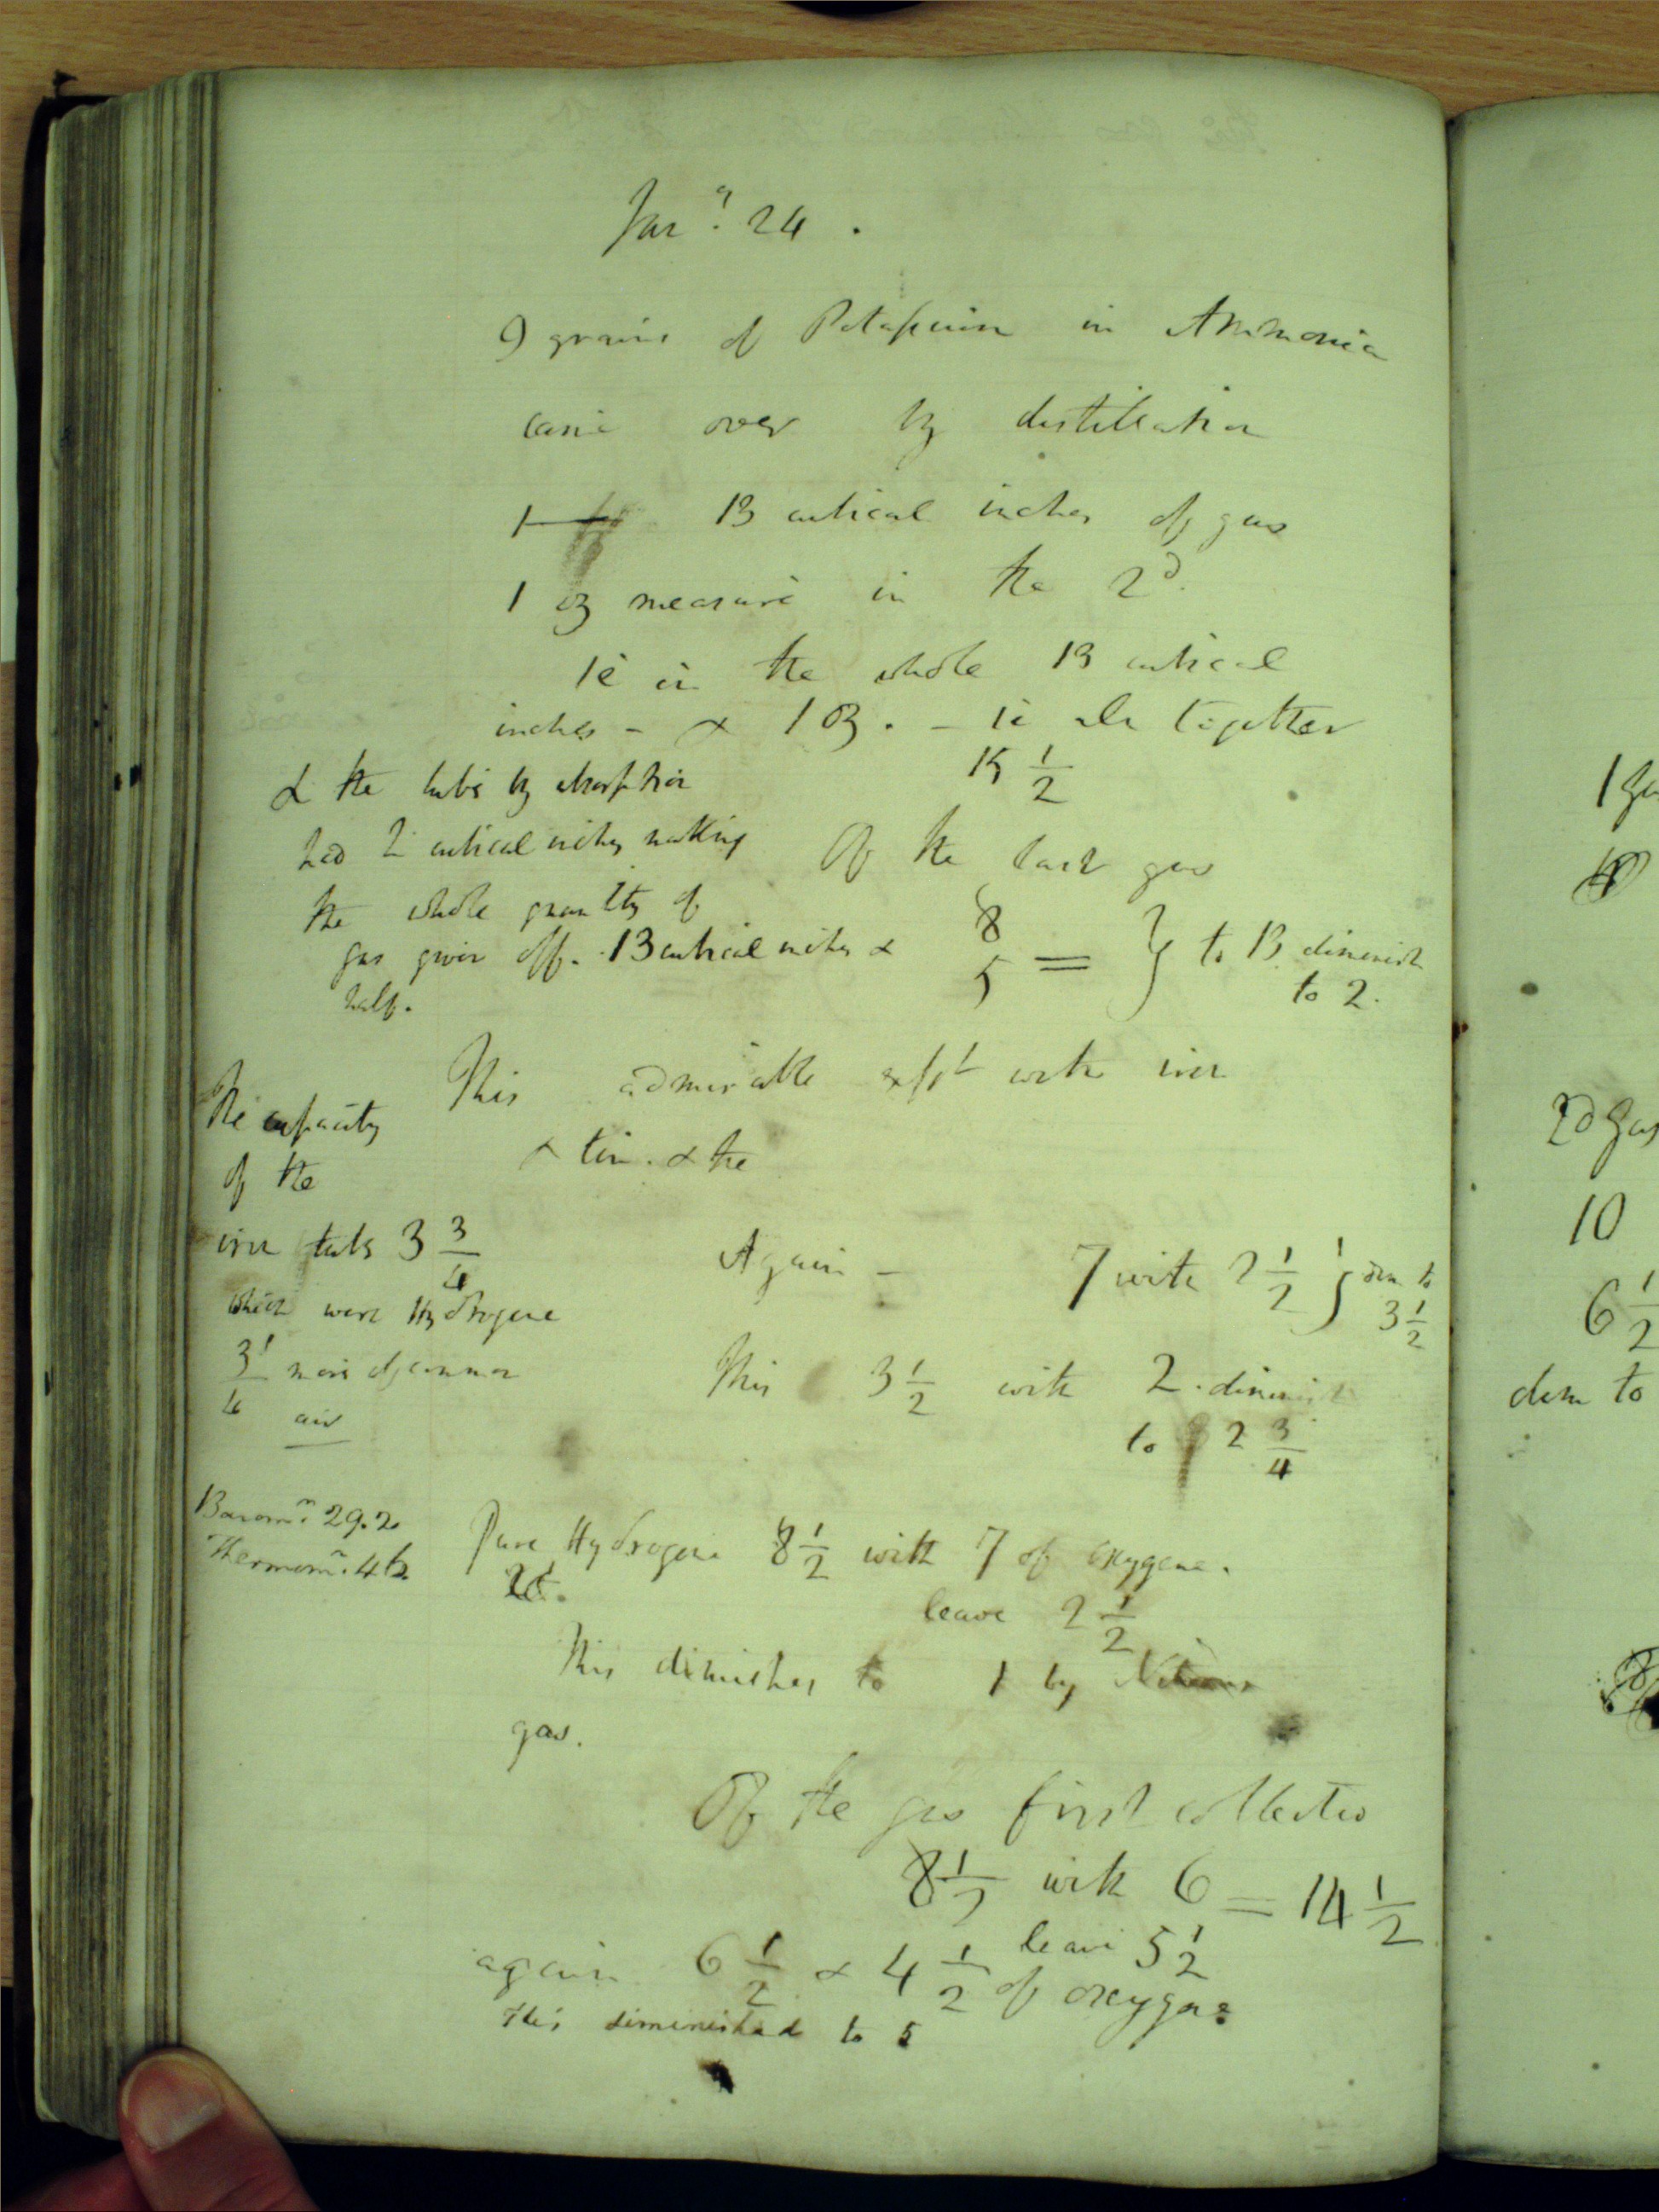 Jany. 24.
9 grains of Potassium in Ammonia
came over by distillation
1 13 cubical inches of gas
1 oz measure in the 2d.
ie in the whole 13 cubical
inches - & 1 oz. - ie all together
15 1/2
& the tube by absorption
had 2 cubical inches making
the whole quantity of
gas given off. 13 cubical inches &
half.
Of the last gas
8
5 = } to 13 diminish
to 2.
This admirable expt with iron
& tin. & the
The capacity
of the
iron tube 3 3/4
which were Hydrogene
3/4 more of common
air
Again - 7 with 2 1/2 } dim to
3 1/2
This 3 1/2 with 2. diminish
to 2 3/4
Baromr. 29.2
Thermomr. 46.
Pure Hydrogene 8 1/2 with 7 of oxygene.
leave 2 1/2
This dimishes to 1 by Nitrous
gas.
Of the gas first collected
8 1/2 with 6 = 14 1/2
leave 5 1/2
again 6 1/2 & 4 1/2 of oxygne
this diminished to 5
1 Ga
2d Gas
10
6 1/2
dim to